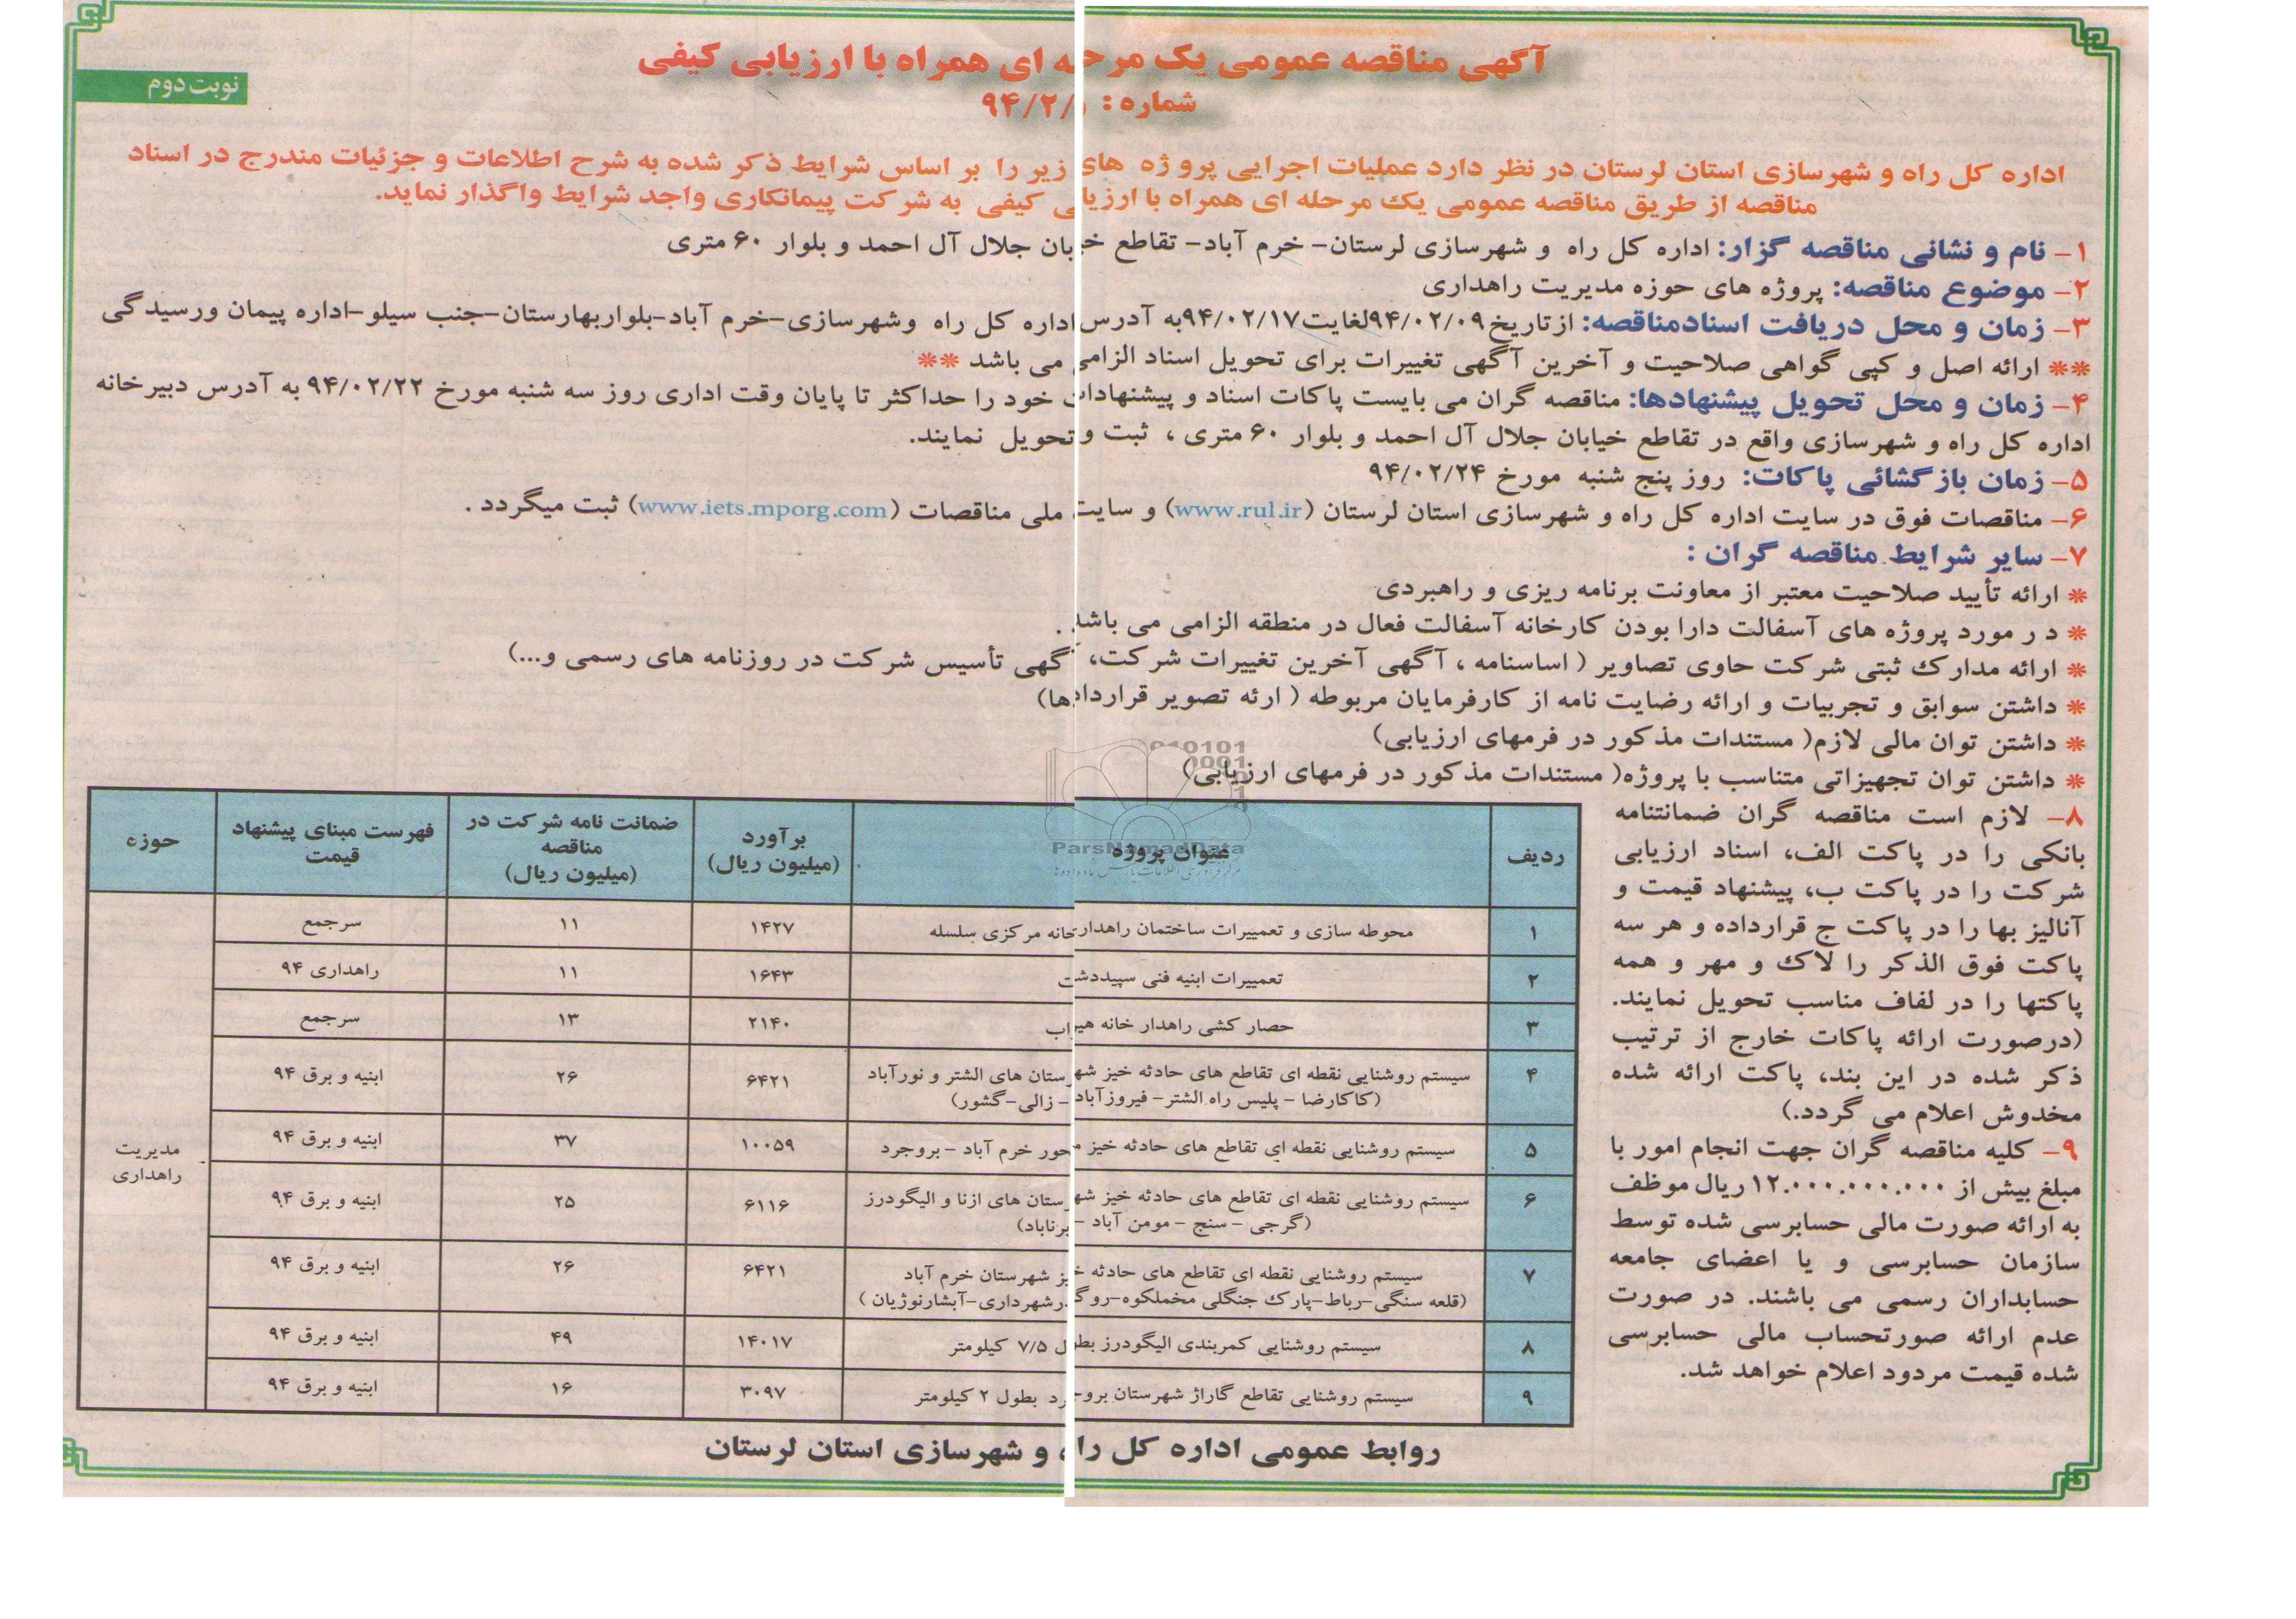 آگهی مناقصه عمومی یک مرحله ای همراه با ارزیابی کیفی
نوبت دوم
شماره : ۹۴/۲/
اداره کل راه و شهرسازی استان لرستان در نظر دارد عملیات اجرایی پروژه های زیر را بر اساس شرایط ذکر شده به شرح اطلاعات و جزئیات مندرج در اسناد
مناقصه از طریق مناقصه عمومی یک مرحله ای همراه با ارزیابی کیفی به شرکت پیمانکاری واجد شرایط واگذار نماید.
۱- نام و نشانی مناقصه گزار: اداره کل راه و شهرسازی لرستان- خرم آباد- تقاطع خیابان جلال آل احمد و بلوار ۶۰ متری
۲- موضوع مناقصه: پروژه های حوزه مدیریت راهداری
۳- زمان و محل دریافت اسنادمناقصه: ازتاریخ ۹۴/۰۲/۰۹لغایت۹۴/۰۲/۱۷به آدرس اداره کل راه وشهرسازی-خرم آباد-بلواربهارستان-جنب سیلو-اداره پیمان ورسیدگی
** ارائه اصل و کپی گواهی صلاحیت و آخرین آگهی تغییرات برای تحویل اسناد الزامی می باشد **
۴- زمان و محل تحویل پیشنهادها: مناقصه گران می بایست پاکات اسناد و پیشنهادات خود را حداکثر تا پایان وقت اداری روز سه شنبه مورخ ۹۴/۰۲/۲۲ به آدرس دبیرخانه
اداره کل راه و شهرسازی واقع در تقاطع خیابان جلال آل احمد و بلوار ۶۰ متری ، ثبت و تحویل نمایند.
۵- زمان بازگشائی پاکات: روز پنج شنبه مورخ ۹۴/۰۲/۲۴
۶- مناقصات فوق در سایت اداره کل راه و شهرسازی استان لرستان (www.rul.ir) و سایت ملی مناقصات (www.iets.mporg.com) ثبت میگردد .
۷- سایر شرایط مناقصه گران :
* ارائه تأیید صلاحیت معتبر از معاونت برنامه ریزی و راهبردی
* د ر مورد پروژه های آسفالت دارا بودن کارخانه آسفالت فعال در منطقه الزامی می باشد .
* ارائه مدارک ثبتی شرکت حاوی تصاویر ( اساسنامه ، آگهی آخرین تغییرات شرکت، آگهی تأسیس شرکت در روزنامه های رسمی و...)
* داشتن سوابق و تجربیات و ارائه رضایت نامه از کارفرمایان مربوطه ( ارئه تصویر قراردادها)
* داشتن توان مالی لازم( مستندات مذکور در فرمهای ارزیابی)
* داشتن توان تجهیزاتی متناسب با پروژه( مستندات مذکور در فرمهای ارزیابی)
۸- لازم است مناقصه گران ضمانتنامه
بانکی را در پاکت الف، اسناد ارزیابی
شرکت را در پاکت ب، پیشنهاد قیمت و
آنالیز بها را در پاکت ج قرارداده و هر سه
پاکت فوق الذکر را لاک و مهر و همه
پاکتها را در لفاف مناسب تحویل نمایند.
(درصورت ارائه پاکات خارج از ترتیب
ذکر شده در این بند، پاکت ارائه شده
مخدوش اعلام می گردد.)
۹- کلیه مناقصه گران جهت انجام امور با
مبلغ بیش از ۱۲.۰۰۰.۰۰۰.۰۰۰ ریال موظف
به ارائه صورت مالی حسابرسی شده توسط
سازمان حسابرسی و یا اعضای جامعه
حسابداران رسمی می باشند. در صورت
عدم ارائه صورتحساب مالی حسابرسی
شده قیمت مردود اعلام خواهد شد.
ردیف | عنوان پروژه | برآورد (میلیون ریال) | ضمانت نامه شرکت در مناقصه (میلیون ریال) | فهرست مبنای پیشنهاد قیمت | حوزه
۱ | محوطه سازی و تعمییرات ساختمان راهدارخانه مرکزی سلسله | ۱۴۲۷ | ۱۱ | سرجمع | مدیریت راهداری
۲ | تعمییرات ابنیه فنی سپیددشت | ۱۶۴۳ | ۱۱ | راهداری ۹۴
۳ | حصار کشی راهدار خانه | ۲۱۴۰ | ۱۳ | سرجمع
۴ | سیستم روشنایی نقطه ای تقاطع های حادثه خیز شهرستان های الشتر و نورآباد (کاکارضا - پلیس راه الشتر- فیروزآباد - زالی-گشور) | ۶۴۲۱ | ۲۶ | ابنیه و برق ۹۴
۵ | سیستم روشنایی نقطه ای تقاطع های حادثه خیز محور خرم آباد - بروجرد | ۱۰۰۵۹ | ۳۷ | ابنیه و برق ۹۴
۶ | سیستم روشنایی نقطه ای تقاطع های حادثه خیز شهرستان های ازنا و الیگودرز (گرجی - سنج - مومن آباد - برناباد) | ۶۱۱۶ | ۲۵ | ابنیه و برق ۹۴
۷ | سیستم روشنایی نقطه ای تقاطع های حادثه خیز شهرستان خرم آباد (قلعه سنگی-رباط-پارک جنگلی مخملکوه-روگذرشهرداری-آبشارنوژیان ) | ۶۴۲۱ | ۲۶ | ابنیه و برق ۹۴
۸ | سیستم روشنایی کمربندی الیگودرز بطول ۷/۵ کیلومتر | ۱۴۰۱۷ | ۴۹ | ابنیه و برق ۹۴
۹ | سیستم روشنایی تقاطع گاراژ شهرستان بروجرد بطول ۲ کیلومتر | ۳۰۹۷ | ۱۶ | ابنیه و برق ۹۴
ParsNamadData
روابط عمومی اداره کل راه و شهرسازی استان لرستان